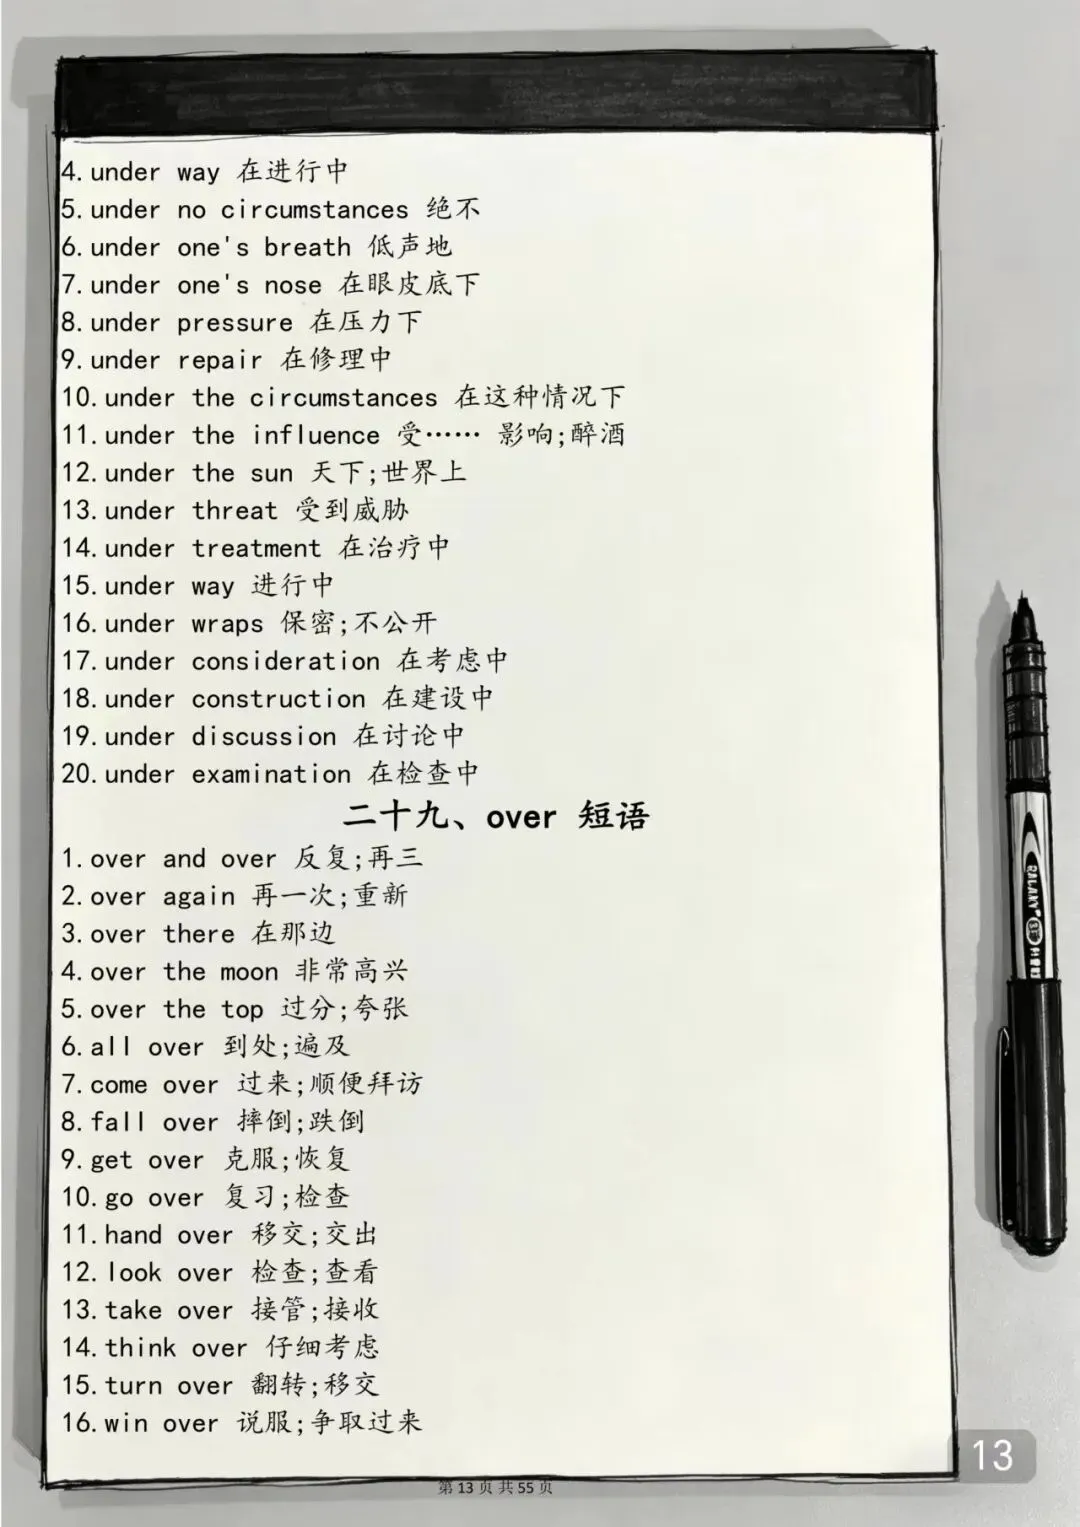 4.under way 在进行中
5.under no circumstances 绝不
6.under one's breath 低声地
7.under one's nose 在眼皮底下
8.under pressure 在压力下
9.under repair 在修理中
10.under the circumstances 在这种情况下
11.under the influence 受…… 影响;醉酒
12.under the sun 天下;世界上
13.under threat 受到威胁
14.under treatment 在治疗中
15.under way 进行中
16.under wraps 保密;不公开
17.under consideration 在考虑中
18.under construction 在建设中
19.under discussion 在讨论中
20.under examination 在检查中
二十九、over 短语
1.over and over 反复;再三
2.over again 再一次;重新
3.over there 在那边
4.over the moon 非常高兴
5.over the top 过分;夸张
6.all over 到处;遍及
7.come over 过来;顺便拜访
8.fall over 摔倒;跌倒
9.get over 克服;恢复
10.go over 复习;检查
11.hand over 移交;交出
12.look over 检查;查看
13.take over 接管;接收
14.think over 仔细考虑
15.turn over 翻转;移交
16.win over 说服;争取过来
第 13 页 共 55 页
13